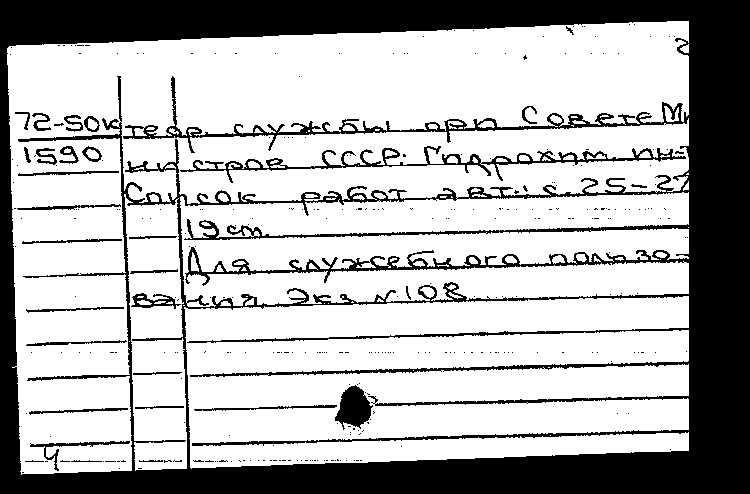 2
72-50к теор. службы при Совете Ми
1590 нистров СССР. Гидрохим. ин-т
Список работ авт.: с. 25-27
19 см.
Для служебного пользо-
вания. Экз. №108
4